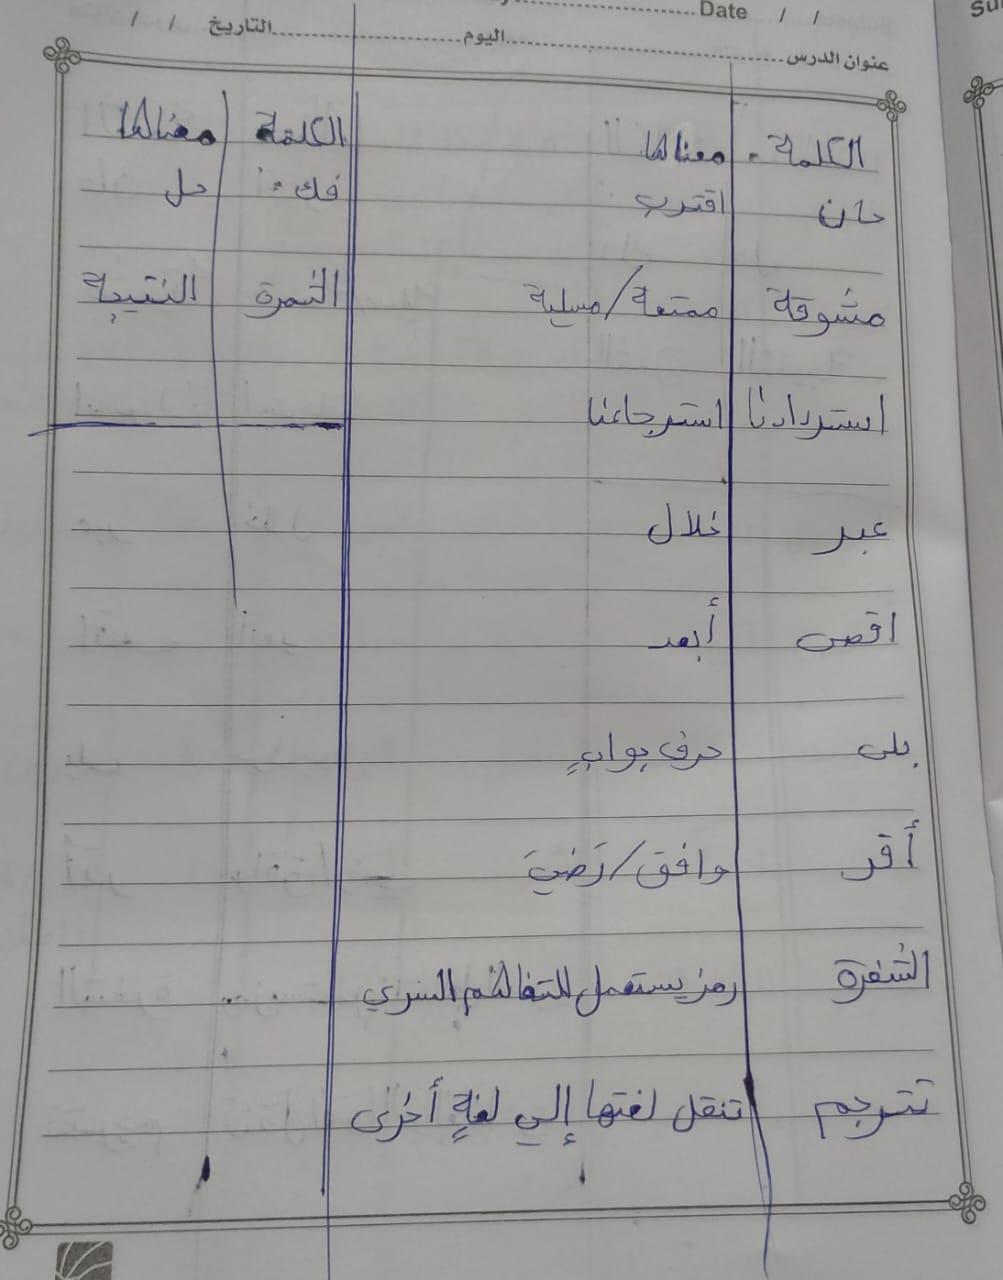 Date / /
التاريخ / / اليوم
عنوان الدرس
الكلمة معناها الكلمة معناها
حان اقترب فك حل
مشوقة ممتعة/مسلية الثمرة النتيجة
استردادنا استرجاعنا
عبر خلال
اقص أبعد
بلى حرف جواب
أقر وافق/رَضيَ
الشفرة رمز يستعمل للتفاهم السري
تترجم تنقل لغتها إلي لغةٍ أخرى